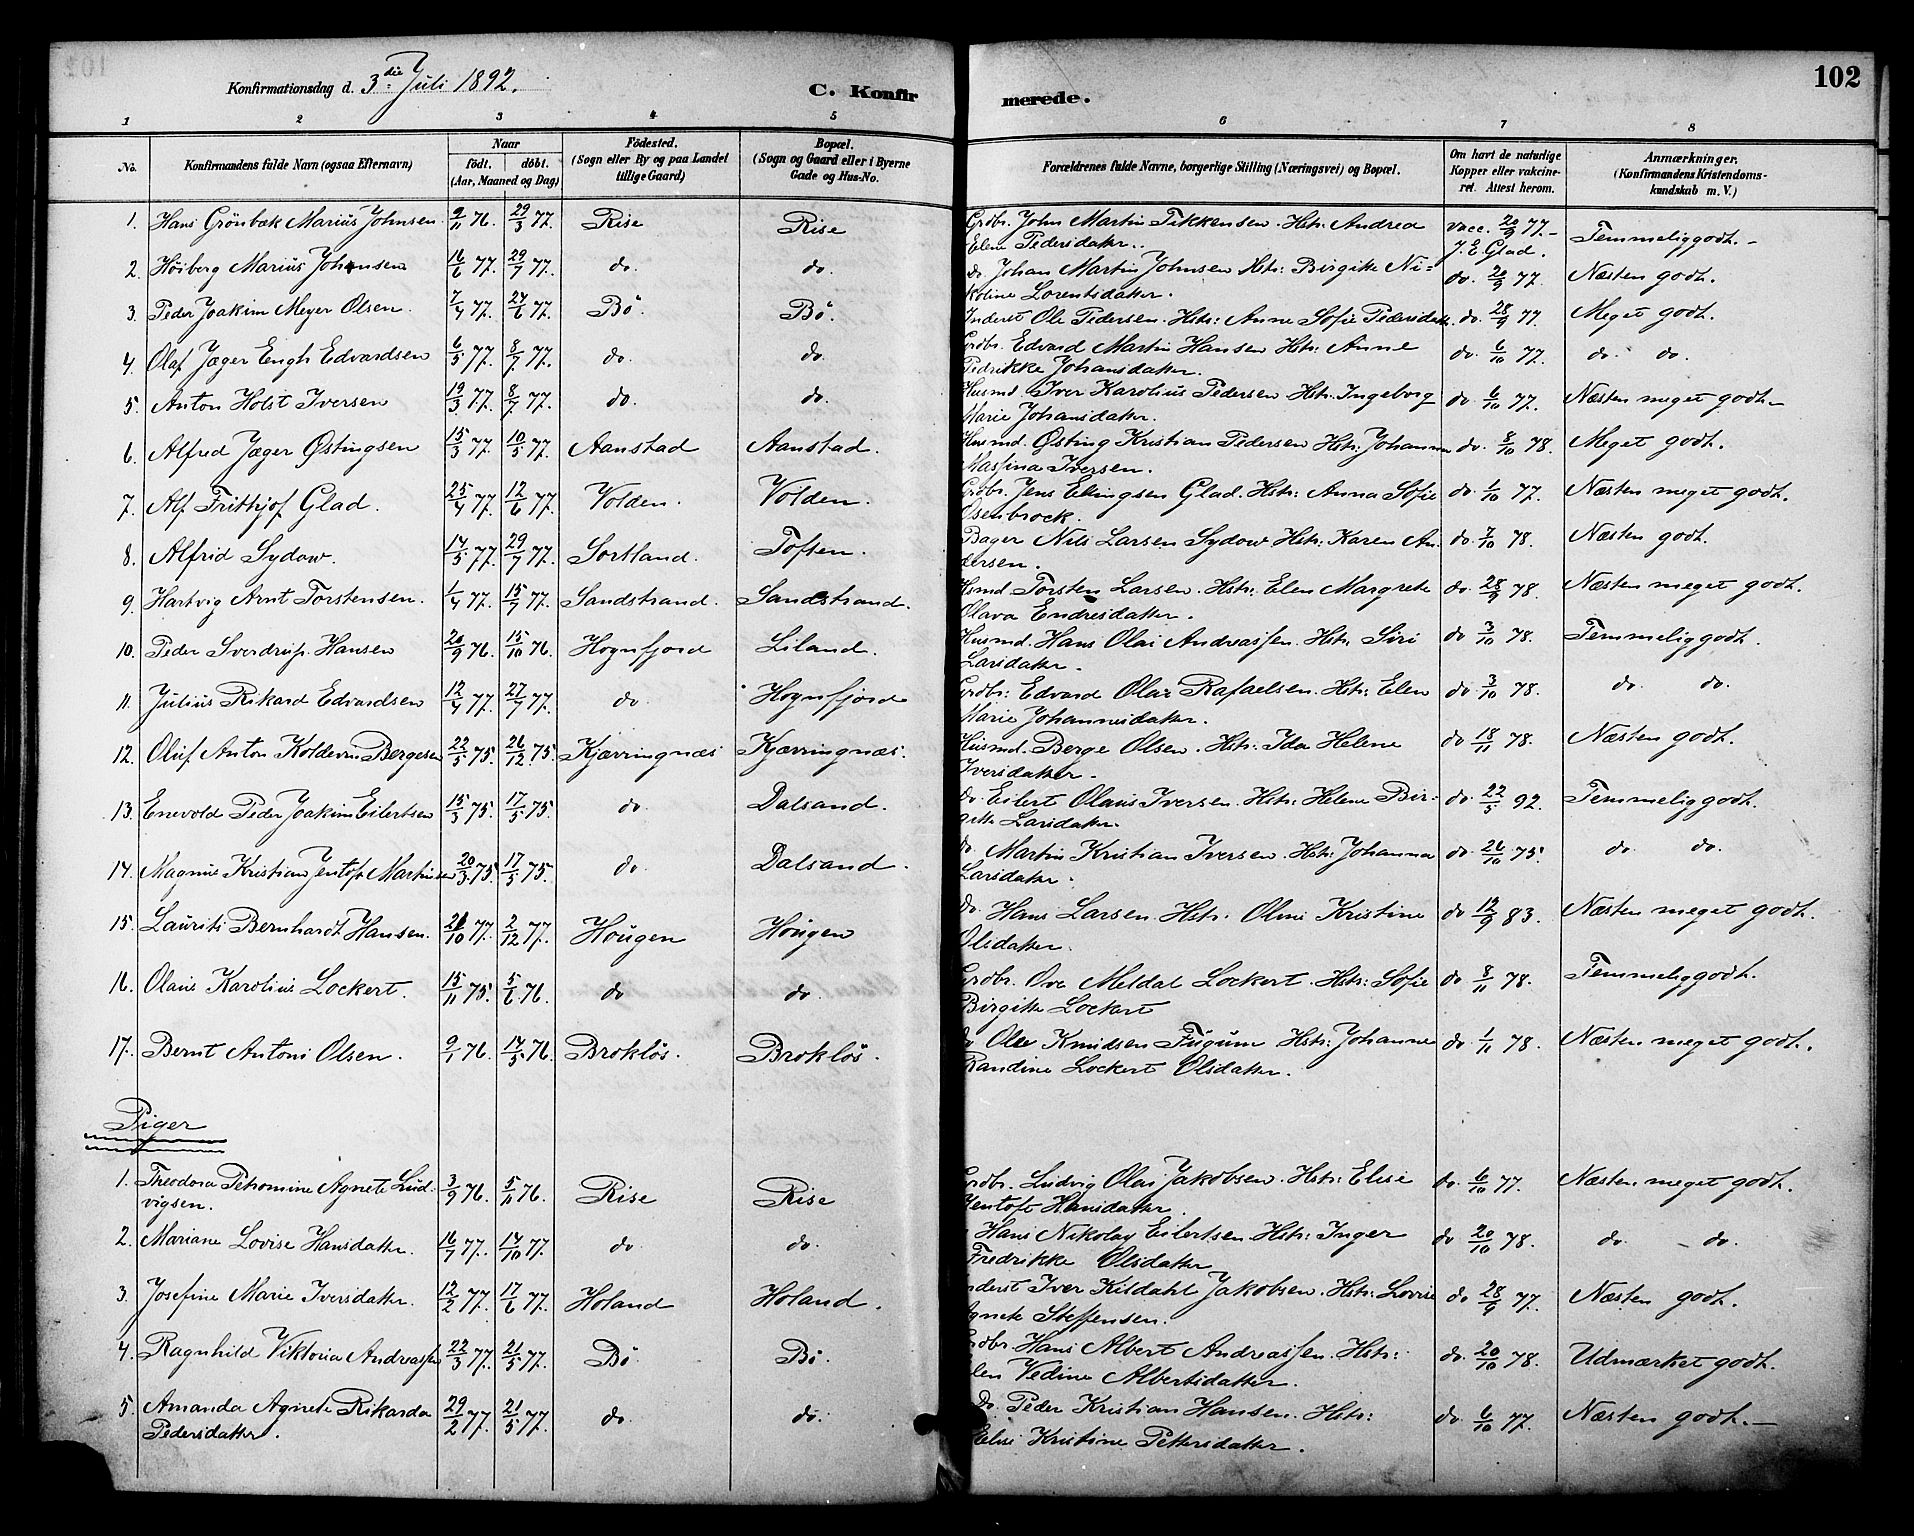 102
Konfirmationsdag d. 3die Juli 1892.
C. Konfirmerede.
1 2 3 4 5 6 7 8
No. Konfirmandens fulde Navn (ogsaa Efternavn) Naar født. døbt. (Aar, Maaned og Dag) Fødested. (Sogn eller By og paa Landet tillige Gaard) Bopæl. (Sogn og Gaard eller i Byerne Gade og Hus-No. Forældrenes fulde Navne, borgerlige Stilling (Næringsvei) og Bopæl. Om havt de naturlige Kopper eller vakcineret. Attest herom. Anmærkninger. (Konfirmandens Kristendomskundskab m. V.)
1. Hans Grönbæk Marius Johnsen 9/11 76. 29/3 77. Rise Rise Grdbr. John Martin Tikkensen. Hstr: Andrea vacc. 20/9 77.- Temmelig godt.-
Elene Pedersdatter. J. E. Glad.
2. Höiberg Marius Johansen 16/6 77. 29/7 77. do. do. do. Johan Martin Johnsen Hstr: Birgitte Ni- do. 20/9 77. Næsten godt.
koline Lorentsdatter.
3. Peder Joakim Meyer Olsen. 7/4 77. 24/6 77. Bö. Bö. Inderst Ole Pedersen. Hstr: Anne Sofie Pedersdatt. do. 28/9 77. Meget godt.
4. Olaf Jæger Engh Edvardsen 6/5 77. 8/7 77. do. do. Grdbr. Edvard Martin Hansen Hstr: Anne do. 6/10 77. do. do.
Pedrikke Johansdatter.
5. Anton Holst Iversen 19/3 77. 8/7 77. do. do. Husmd. Iver Karolius Pedersen Hstr. Ingeborg do. 6/10 77. Næsten meget godt.-
Marie Johansdatter.
6. Alfred Jæger Østingsen 15/3 77. 10/5 77. Aanstad Aanstad. Husmd. Østing Kristian Pedersen Hstr: Johanna do. 8/10 78. Meget godt.
Massina Iversen.
7. Alf Frithjof Glad. 25/4 77. 12/6 77. Volden. Volden. Grdbr. Jens Ellingsen Glad. Hstr: Anna Sofie do. 1/10 77. Næsten meget godt.
Osenbrock.
8. Alfrid Sydow. 14/5 77. 29/7 77. Sortland. Toften. Bager Nils Larsen Sydow Hstr: Karen An- do. 7/10 78. Næsten godt.
dersen.
9. Hartvig Arnt Torstensen. 1/4 77. 15/7 77. Sandstrand. Sandstrand. Hsmd Torsten Larsen. Hstr: Elen Margrete do. 28/9 78. Næsten meget godt.
Olava Endresdatter.
10. Peder Sverdrup Hansen 20/9 76. 15/10 76. Hognfjord Liland. Husmd. Hans Olai Andreassen. Hstr. Siri do 3/10 78. Temmelig godt.
Larsdatter.
11. Julius Rikard Edvardsen 12/4 77. 27/7 77. do. Hognfjord Grdbr: Edvard Olai Rafaelsen. Hstr: Elen do 3/10 78. do. do.
Marie Johannesdatter.
12. Oluf Anton Koldevin Bergesen 22/5 75. 26/12 75. Kjærringnæs Kjærringnæs. Husmd. Berge Olsen. Hstr: Ida Helene do 18/11 78. Næsten godt.
Iversdatter.
13. Enevold Peder Joakim Eilertsen 15/3 75. 17/5 75. do. Dalsand. do. Eilert Olaus Iversen. Hstr: Helene Bir- do. 22/5 92. Temmelig godt.
gitte Larsdatter.
14. Magnus Kristian Jentoft Martinsen 20/3 75. 17/5 75. do. Dalsand. do. Martin Kristian Iversen. Hstr: Johanna do. 26/10 75. do. do.
Larsdatter.
15. Laurits Bernhardt Hansen. 21/10 77. 2/12 77. Hougen Hougen do. Hans Larsen. Hstr: Oline Kristine do 12/9 83. Næsten meget godt.
Olsdatter.
16. Olaus Karolius Lockert. 15/11 75. 5/6 76. do do. Grdbr. Ove Meldal Lockert. Hstr: Sofie do. 8/11 78. Temmelig godt.
Birgitte Lockert
17. Bernt Antoni Olsen. 9/1 76. 14/5 76. Broklös. Broklös. do Ole Knudsen Hstr: Johanne do. 1/11 78. Næsten meget godt.
Randine Lockert Olsdatter.
Piger
1. Theodora Petromine Agnete Lud- 3/9 76. 5/11 76. Rise Rise Grdbr. Ludvig Olai Jakobsen. Hstr: Elise do. 6/10 77. Næsten meget godt.
vigsen. Jentoft Hansdatter.
2. Mariane Lovise Hansdatter. 16/7 77. 14/10 77. do. do. Hans Nikolay Eilertsen Hstr: Inger do 20/10 78. do. - do.
Fredrikke Olsdatter
3. Josefine Marie Iversdatter. 12/2 77. 17/6 77. Holand Holand. Inderst Iver Kildahl Jakobsen. Hstr: Lovise do 28/9 77. Næsten godt.
Agnete Steffensen.
4. Ragnhild Viktoria Andreassen 22/3 77. 21/5 77. Bö. Bö. Grdbr. Hans Albert Andreassen. Hstr: do. 20/10 78. Udmærket godt.
Elen Vedine Albertsdatter.
5. Amanda Agnete Rikarda 29/2 77. 21/5 77. do. do. Do. Peder Kristian Hansen. Hstr: do. 6/10 77. Næsten godt.-
Pedersdatter. Elise Kristine Pettersdatter.